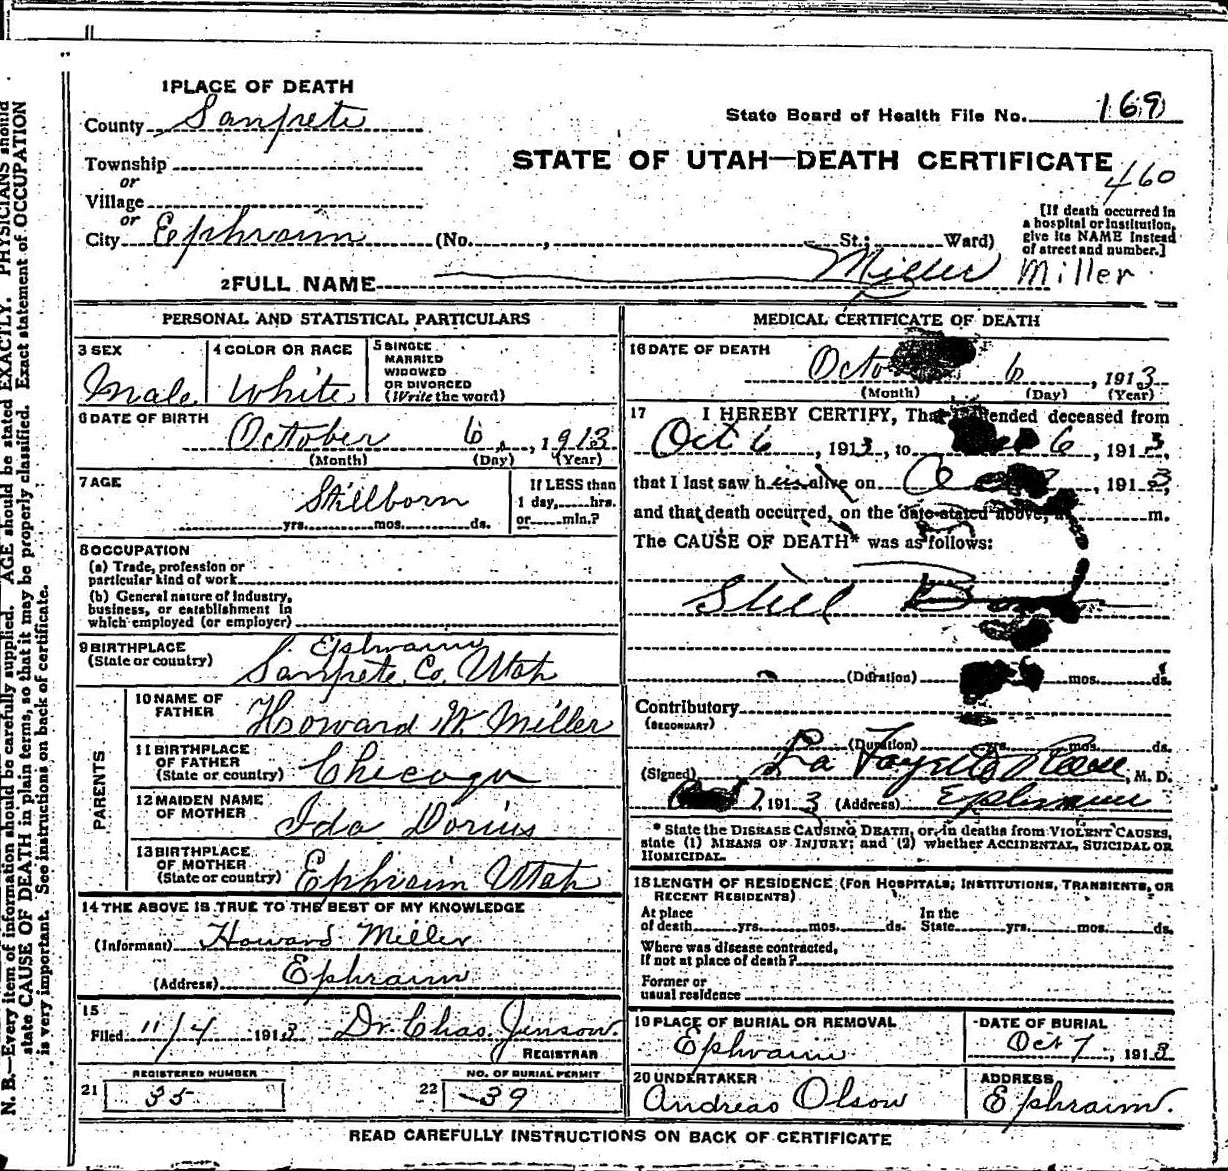 1 PLACE OF DEATH
County Sanpete
State Board of Health File No. 169
Township
STATE OF UTAH—DEATH CERTIFICATE
460
or
Village
or
City Ephraim (No. , St.; Ward)
[If death occurred in
a hospital or institution,
give its NAME instead
of street and number.]
2 FULL NAME Miller Miller
PERSONAL AND STATISTICAL PARTICULARS
3 SEX
Male
4 COLOR OR RACE
White
5 SINGLE
MARRIED
WIDOWED
OR DIVORCED
(Write the word)
6 DATE OF BIRTH
October 6, 1913
(Month) (Day) (Year)
7 AGE
Stillborn
yrs. mos. ds.
If LESS than
1 day, hrs.
or min.?
8 OCCUPATION
(a) Trade, profession or
particular kind of work
(b) General nature of industry,
business, or establishment in
which employed (or employer)
9 BIRTHPLACE
(State or country)
Ephraim
Sanpete Co, Utah
PARENTS
10 NAME OF
FATHER
Howard W. Miller
11 BIRTHPLACE
OF FATHER
(State or country)
Chicago
12 MAIDEN NAME
OF MOTHER
Ida Dorius
13 BIRTHPLACE
OF MOTHER
(State or country)
Ephraim Utah
14 THE ABOVE IS TRUE TO THE BEST OF MY KNOWLEDGE
(Informant) Howard Miller
(Address) Ephraim
15
Filed 11/4 1913 Dr. Chas. Jenson.
REGISTRAR
REGISTERED NUMBER
21 35
NO. OF BURIAL PERMIT
22 39
MEDICAL CERTIFICATE OF DEATH
16 DATE OF DEATH
Octo 6, 1913
(Month) (Day) (Year)
17 I HEREBY CERTIFY, That attended deceased from
Oct 6, 1913, to 6, 1913,
that I last saw h alive on , 1913,
and that death occurred, on the date stated above, at m.
The CAUSE OF DEATH* was as follows:
Still
(Duration) mos. ds.
Contributory
(SECONDARY)
(Duration) yrs. mos. ds.
(Signed) La Fayette , M. D.
7, 1913 (Address) Ephraim
* State the DISEASE CAUSING DEATH, or, in deaths from VIOLENT CAUSES,
state (1) MEANS OF INJURY; and (2) whether ACCIDENTAL, SUICIDAL OR
HOMICIDAL.
18 LENGTH OF RESIDENCE (FOR HOSPITALS, INSTITUTIONS, TRANSIENTS, OR
RECENT RESIDENTS)
At place
of death yrs. mos. ds.
In the
State yrs. mos. ds.
Where was disease contracted,
if not at place of death?
Former or
usual residence
19 PLACE OF BURIAL OR REMOVAL
Ephraim
DATE OF BURIAL
Oct 7, 1913
20 UNDERTAKER
Andreas Olson
ADDRESS
Ephraim.
READ CAREFULLY INSTRUCTIONS ON BACK OF CERTIFICATE
N. B.—Every item of information should be carefully supplied. AGE should be stated EXACTLY. PHYSICIANS should
state CAUSE OF DEATH in plain terms, so that it may be properly classified. Exact statement of OCCUPATION
is very important. See instructions on back of certificate.